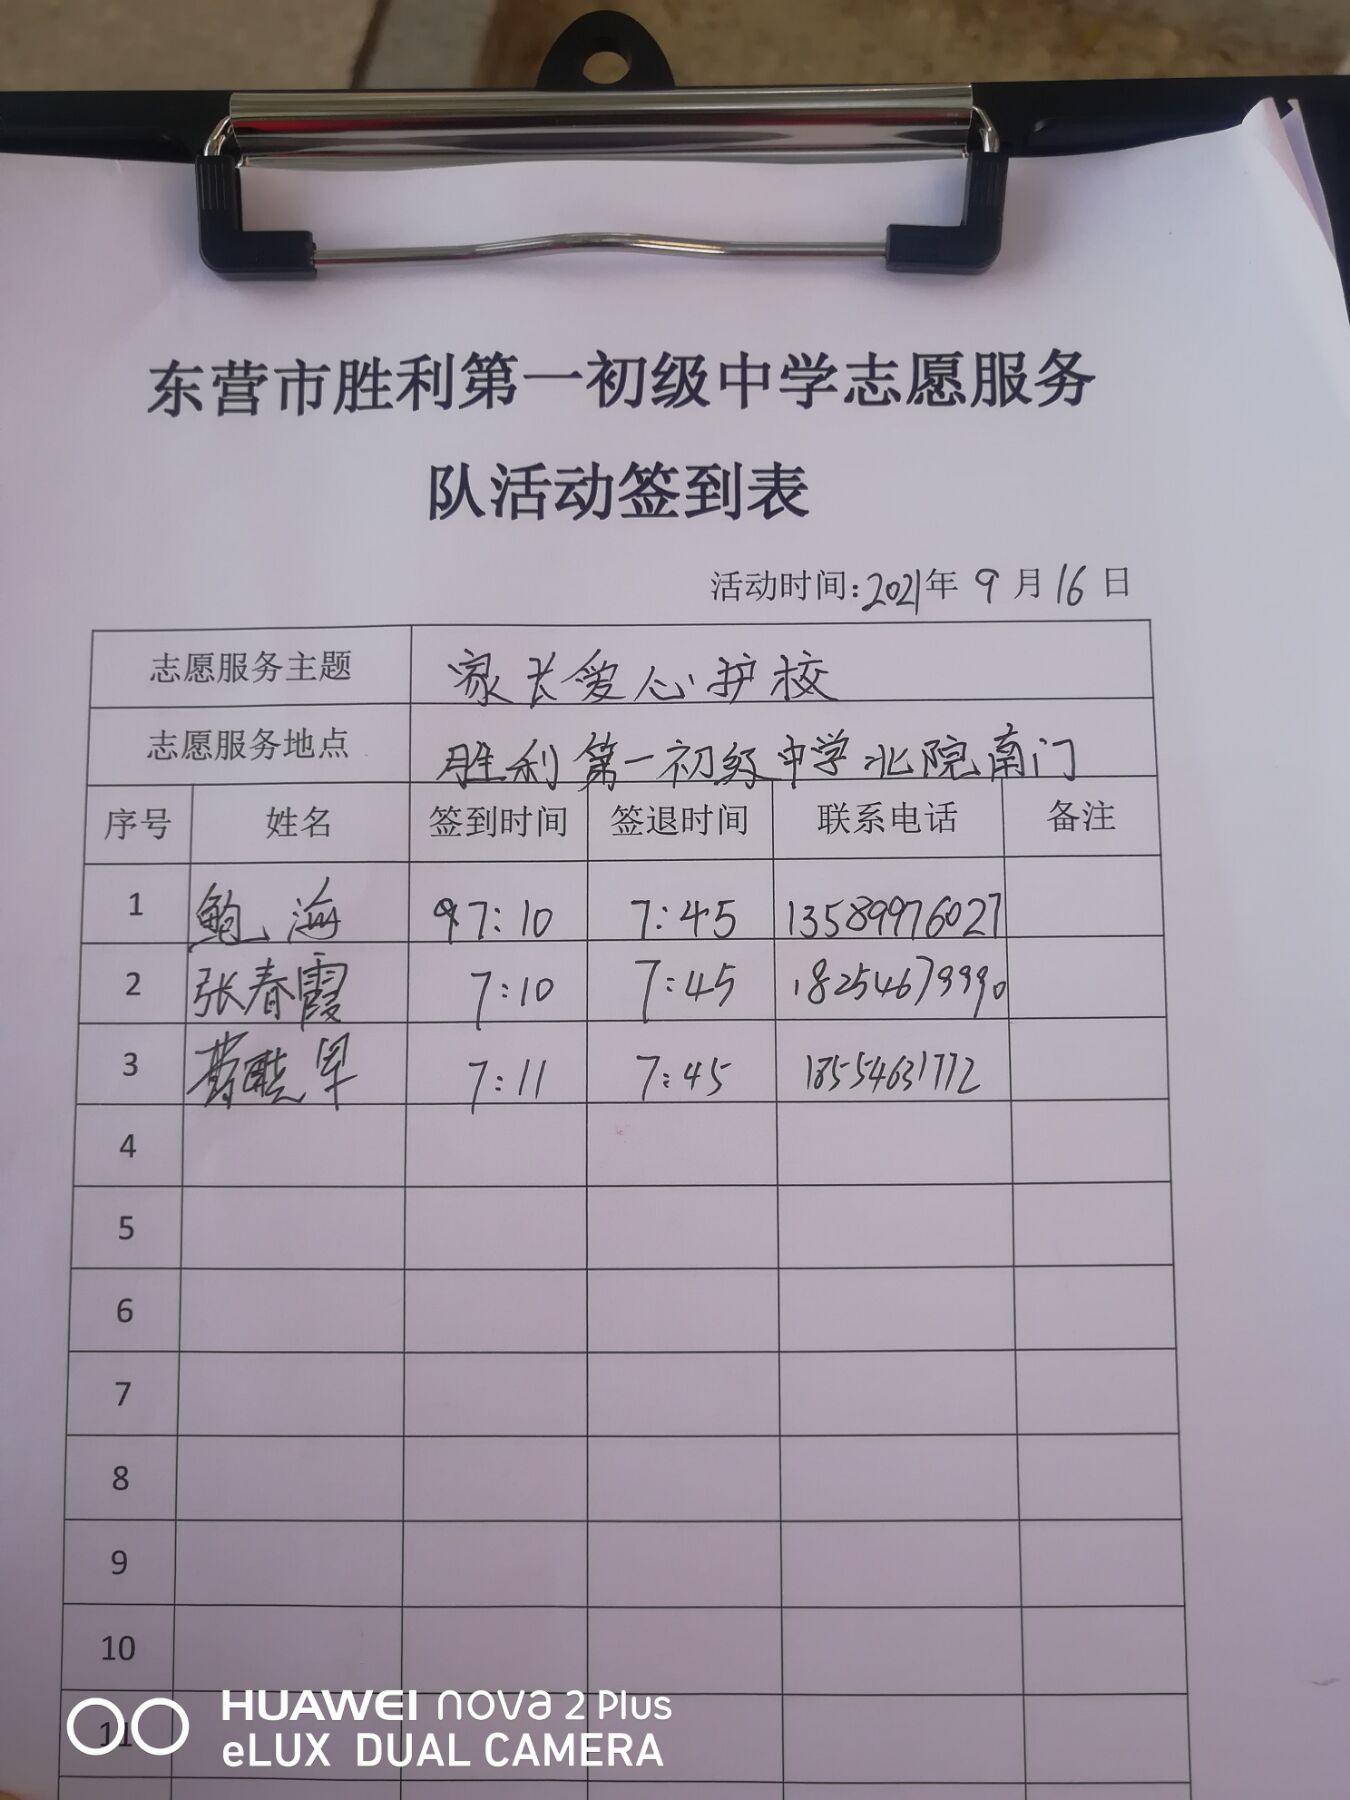 东营市胜利第一初级中学志愿服务
队活动签到表
活动时间:2021年 9 月 16 日
志愿服务主题 家长爱心护校
志愿服务地点 胜利第一初级中学北院南门
序号 姓名 签到时间 签退时间 联系电话 备注
1 鲍海 7:10 7:45 13589976027
2 张春霞 7:10 7:45 18254679990
3 7:11 7:45 18554631772
4
5
6
7
8
9
10
11
HUAWEI nova 2 Plus
eLUX DUAL CAMERA